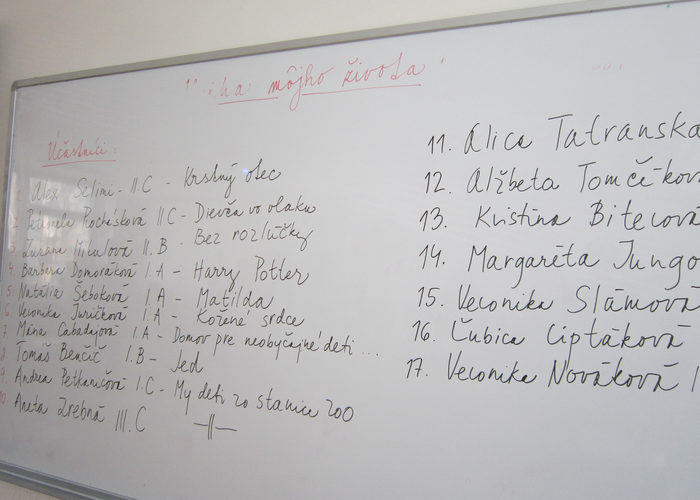 môjho života
Účastníci:
Alex Selimi - II.C - Krstný otec
2. Petronela Rochásková II.C - Dievča vo vlaku
Zuzana Miculová II.B - Bez rozlúčky
4. Barbora Domoráková I.A - Harry Potter
5. Natália Šeboková I.A - Matilda
6. Veronika Juríčková I.A - Kožené srdce
7. Mária Cabadajová I.A - Domov pre neobyčajné deti ...
8. Tomáš Benčič I.B - Jed
9. Andrea Petkaničová I.C - My deti zo stanice ZOO
10. Aneta Zrebná III.C -||-
11. Alica Tatranská
12. Alžbeta Tomčíkov
13. Kristína Bitecová
14. Margaréta Jungo
15. Veronika Slámová
16. Ľubica Ciptáková
17. Veronika Nováková I